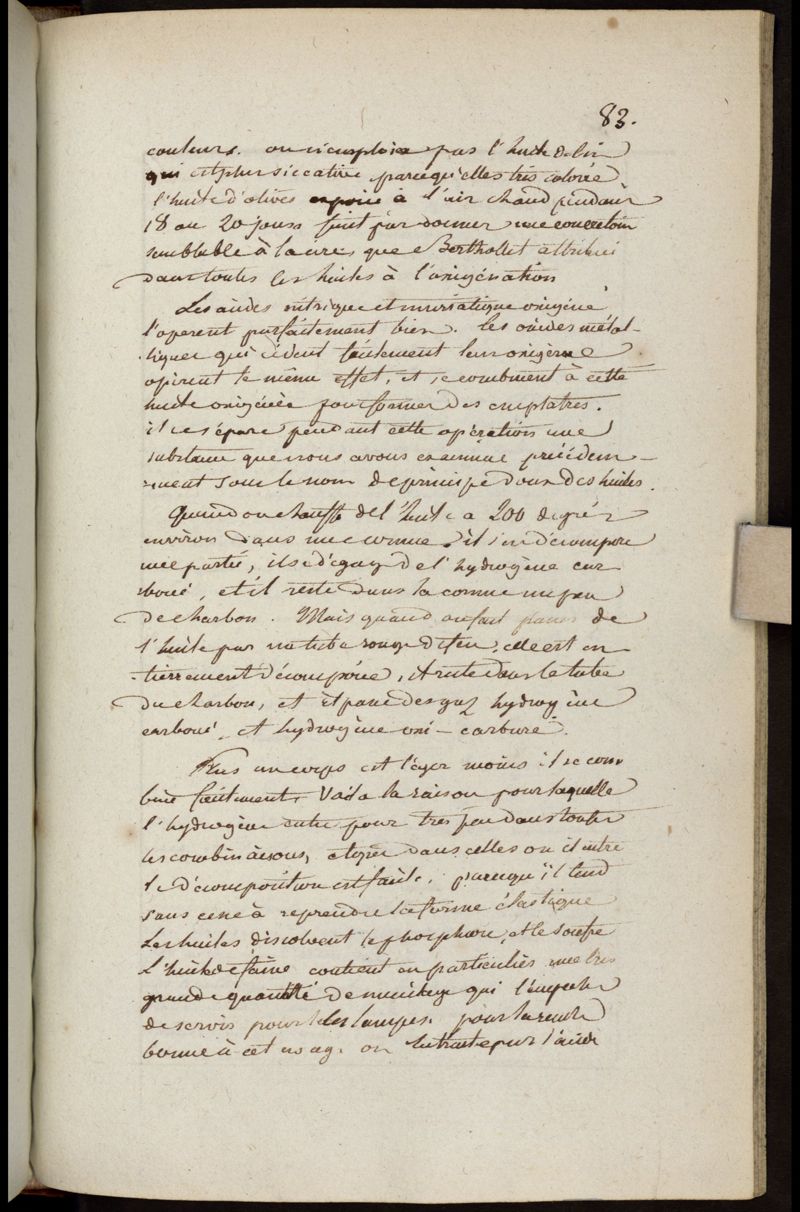 83.
couleurs. on n'emploie pas l'huile de lin
qui est plus siccative parcequ'elle est tres colorée
l'huile d'olives exposée à l'air chaud pendant
18 ou 20 jours finit par donner une concretion
semblable à la cire, que Berthollet attribue
dans toutes les huiles à l'oxigénation
Les acides nitrique et muriatique oxigéné
l'operent parfaitement bien. les oxides métal-
liques qui cèdent facilement leur oxigène
opèrent le même effet, et se combinent à cette
huile oxigénée pour former des emplatres.
il se sépare pendant cette opération une
substance que nous avons examinée précédem-
ment sous le nom de principe doux des huiles.
Quand on chauffe de l'huile a 200 degrés
environ dans une cornue, il s'en décompose
une partie, il se dégage de l'hydrogène car
boné, et il reste dans la cornue un peu
de charbon. Mais quand on fait passer de
l'huile par un tube rouge de feu, elle est en-
tierrement décomposée, il reste dans le tube
du charbon, et il passe des gaz hydrogène
carboné, et hydrogène oxi-carburé.
Plus un corps est léger moins il se com
bine facilement. Voila la raison pour laquelle
l'hydrogène entre pour très peu dans toutes
les combinaisons, et que dans celles ou il entre
la décomposition est facile, parcequ'il tend
sans cesse à reprendre la forme élastique
Les huiles dissolvent le phosphore, et le soufre
L'huile de faine contient en particulier une très
grande quantité de mucilage qui l'empeche
de servir pour les lampes. pour la rendre
bonne à cet usage. on la traite par l'acide